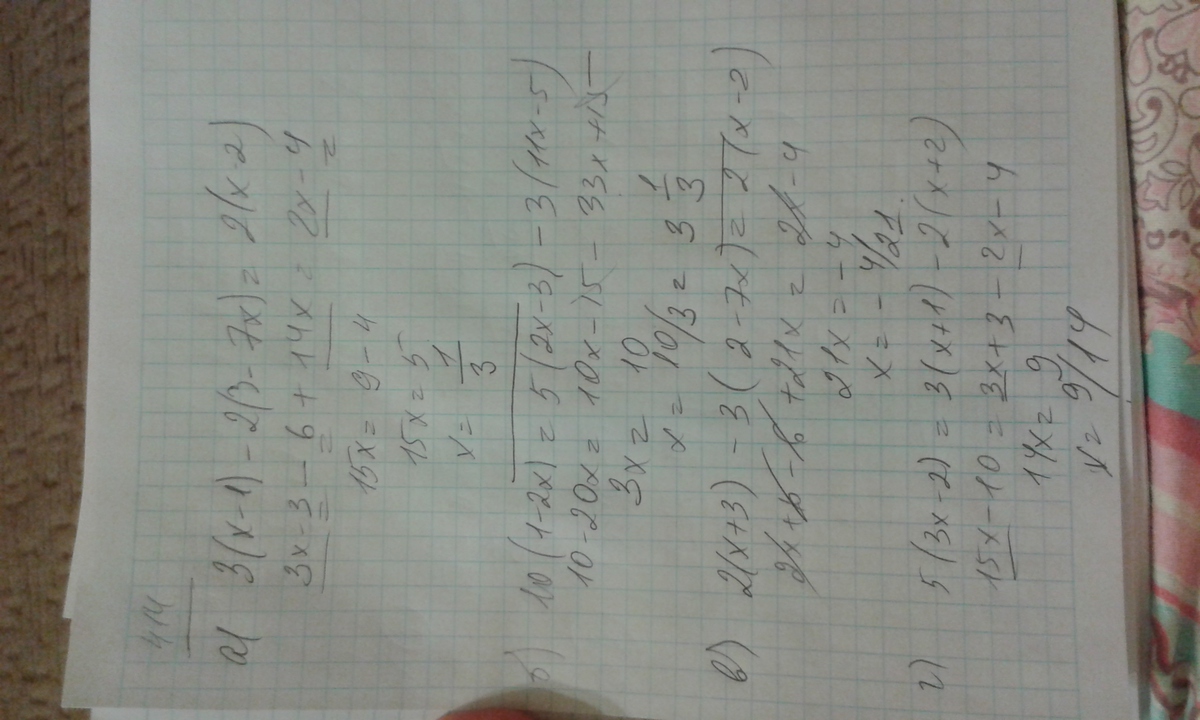 414
а) 3(x-1) - 2(3-7x) = 2(x-2)
3x-3 - 6 + 14x = 2x-4
15x = 9-4
15x = 5
x = 1/3
б) 10(1-2x) = 5(2x-3) - 3(11x-5)
10-20x = 10x-15 - 33x+15
3x = 10
x = 10/3 = 3 1/3
в) 2(x+3) - 3(2-7x) = 2(x-2)
2x+6-6+21x = 2x-4
21x = -4
x = -4/21.
г) 5(3x-2) = 3(x+1) - 2(x+2)
15x-10 = 3x+3 - 2x-4
14x = 9
x = 9/14